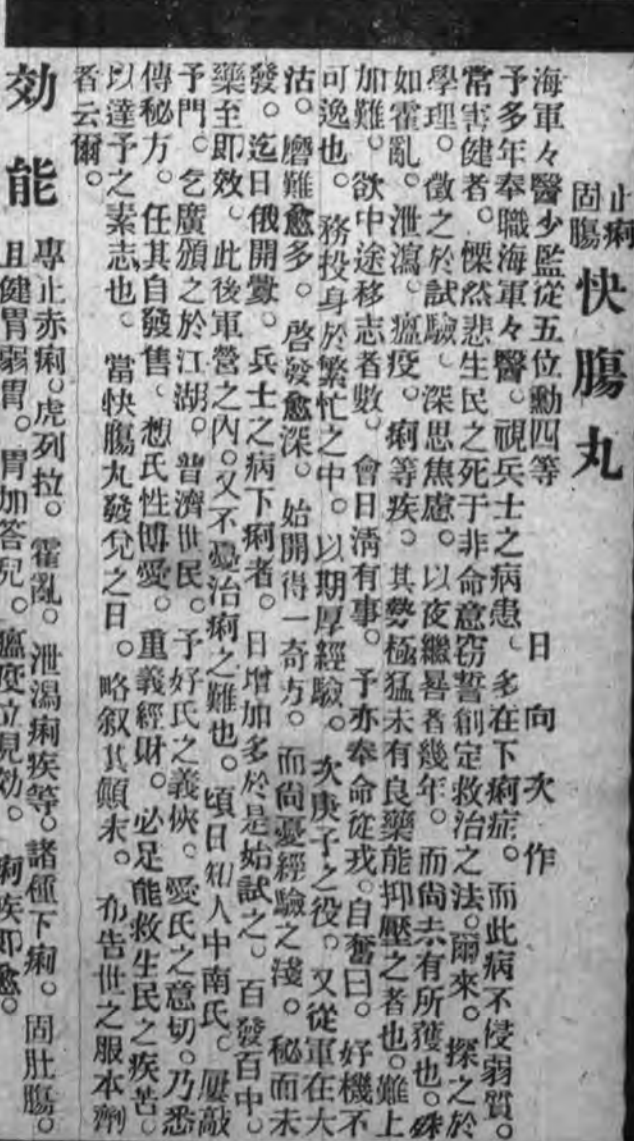 止痢
固腸
快腸丸
海軍々醫少監從五位勳四等　日向次作
予多年奉職海軍々醫。視兵士之病患、多在下痢症。而此病不侵弱質。
常害健者。慄然悲生民之死于非命意窃誓創定救治之法。爾來。探之於
學理。徵之於試驗、深思焦慮。以夜繼晷者幾年。而尙未有所獲也。殊
如霍亂。泄瀉。瘟疫。痢等疾。其勢極猛未有良藥能抑壓之者也。難上
加難。欲中途移志者數。會日淸有事。予亦奉命從戎。自奮曰。好機不
可逸也。務投身於繁忙之中。以期厚經驗。次庚子之役。又從軍在大
沽。磨難愈多。啓發愈深。始開得一奇方。而尙憂經驗之淺。秘而未
發。迄日俄開釁。兵士之病下痢者。日增加多於是始試之。百發百中。
藥至即效。此後軍營之內。又不憂治痢之難也。頃日知人中南氏。屢敲
予門。乞廣頒之於江湖。普濟世民。予好氏之義俠。愛氏之意切。乃悉
傳秘方。任其自發售。想氏性博愛。重義經財。必足能救生民之疾苦。
以達予之素志也。當快腸丸發兌之日。略叙其顚末。布告世之服本劑
者云爾。
効能
專止赤痢。虎列拉。霍亂。泄瀉痢疾等。諸種下痢。固肚腸。
且健胃弱胃。胃加答兒。瘟疫立見効。痢疾即愈。